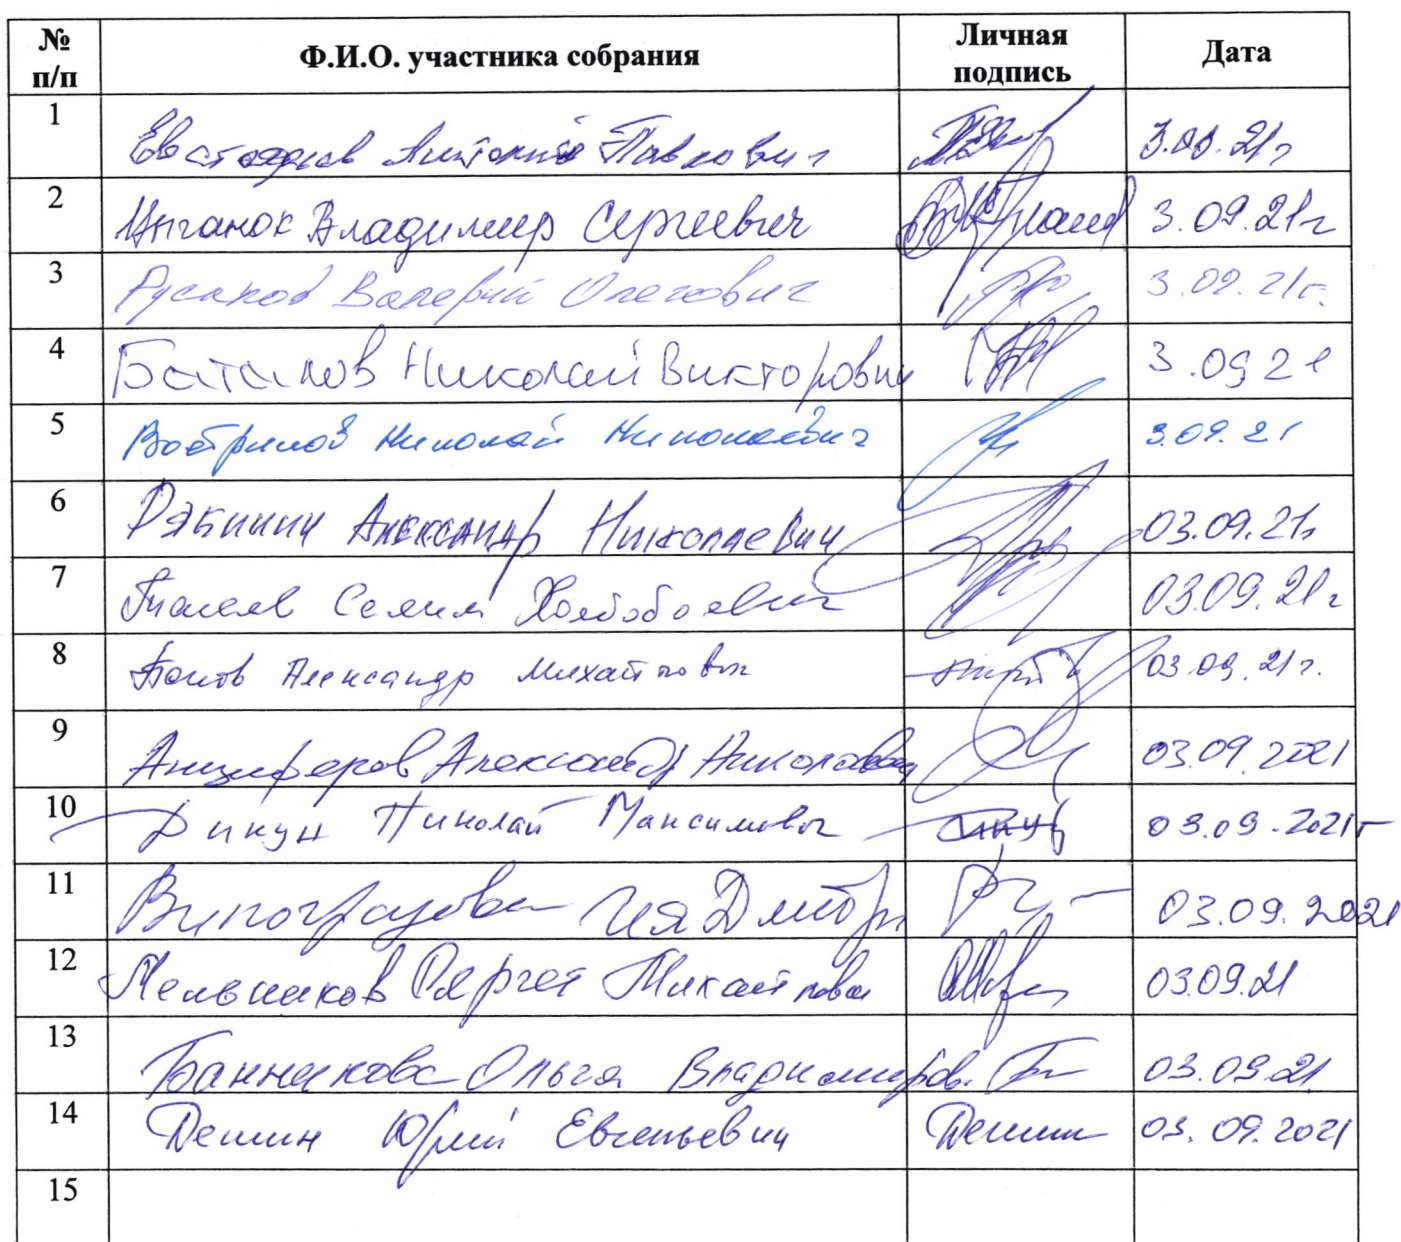 № п/п Ф.И.О. участника собрания Личная подпись Дата
1 Антоний Павлович 3.09.21г
2 Цыганок Владимир Сергеевич 3.09.21г
3 Русаков Валерий Олегович 3.09.21г.
4 Баталов Николай Викторович 3.09 21
5 Востриков Николай Николаевич 3.09.21
6 Рябинин Александр Николаевич 03.09.21г
7 Салим 03.09.21г
8 Александр Михайлович 03.09.21г.
9 Анциферов Александр Николаевич 03.09.2021
10 Дикун Николай Максимович Дикун 03.09.2021г
11 Виноградова Ия Дмитр 03.09.2021
12 Мельников Сергей Михайлович 03.09.21
13 Банникова Ольга Владимиров. 03.09.21
14 Демин Юрий Евгеньевич Демин 03.09.2021
15